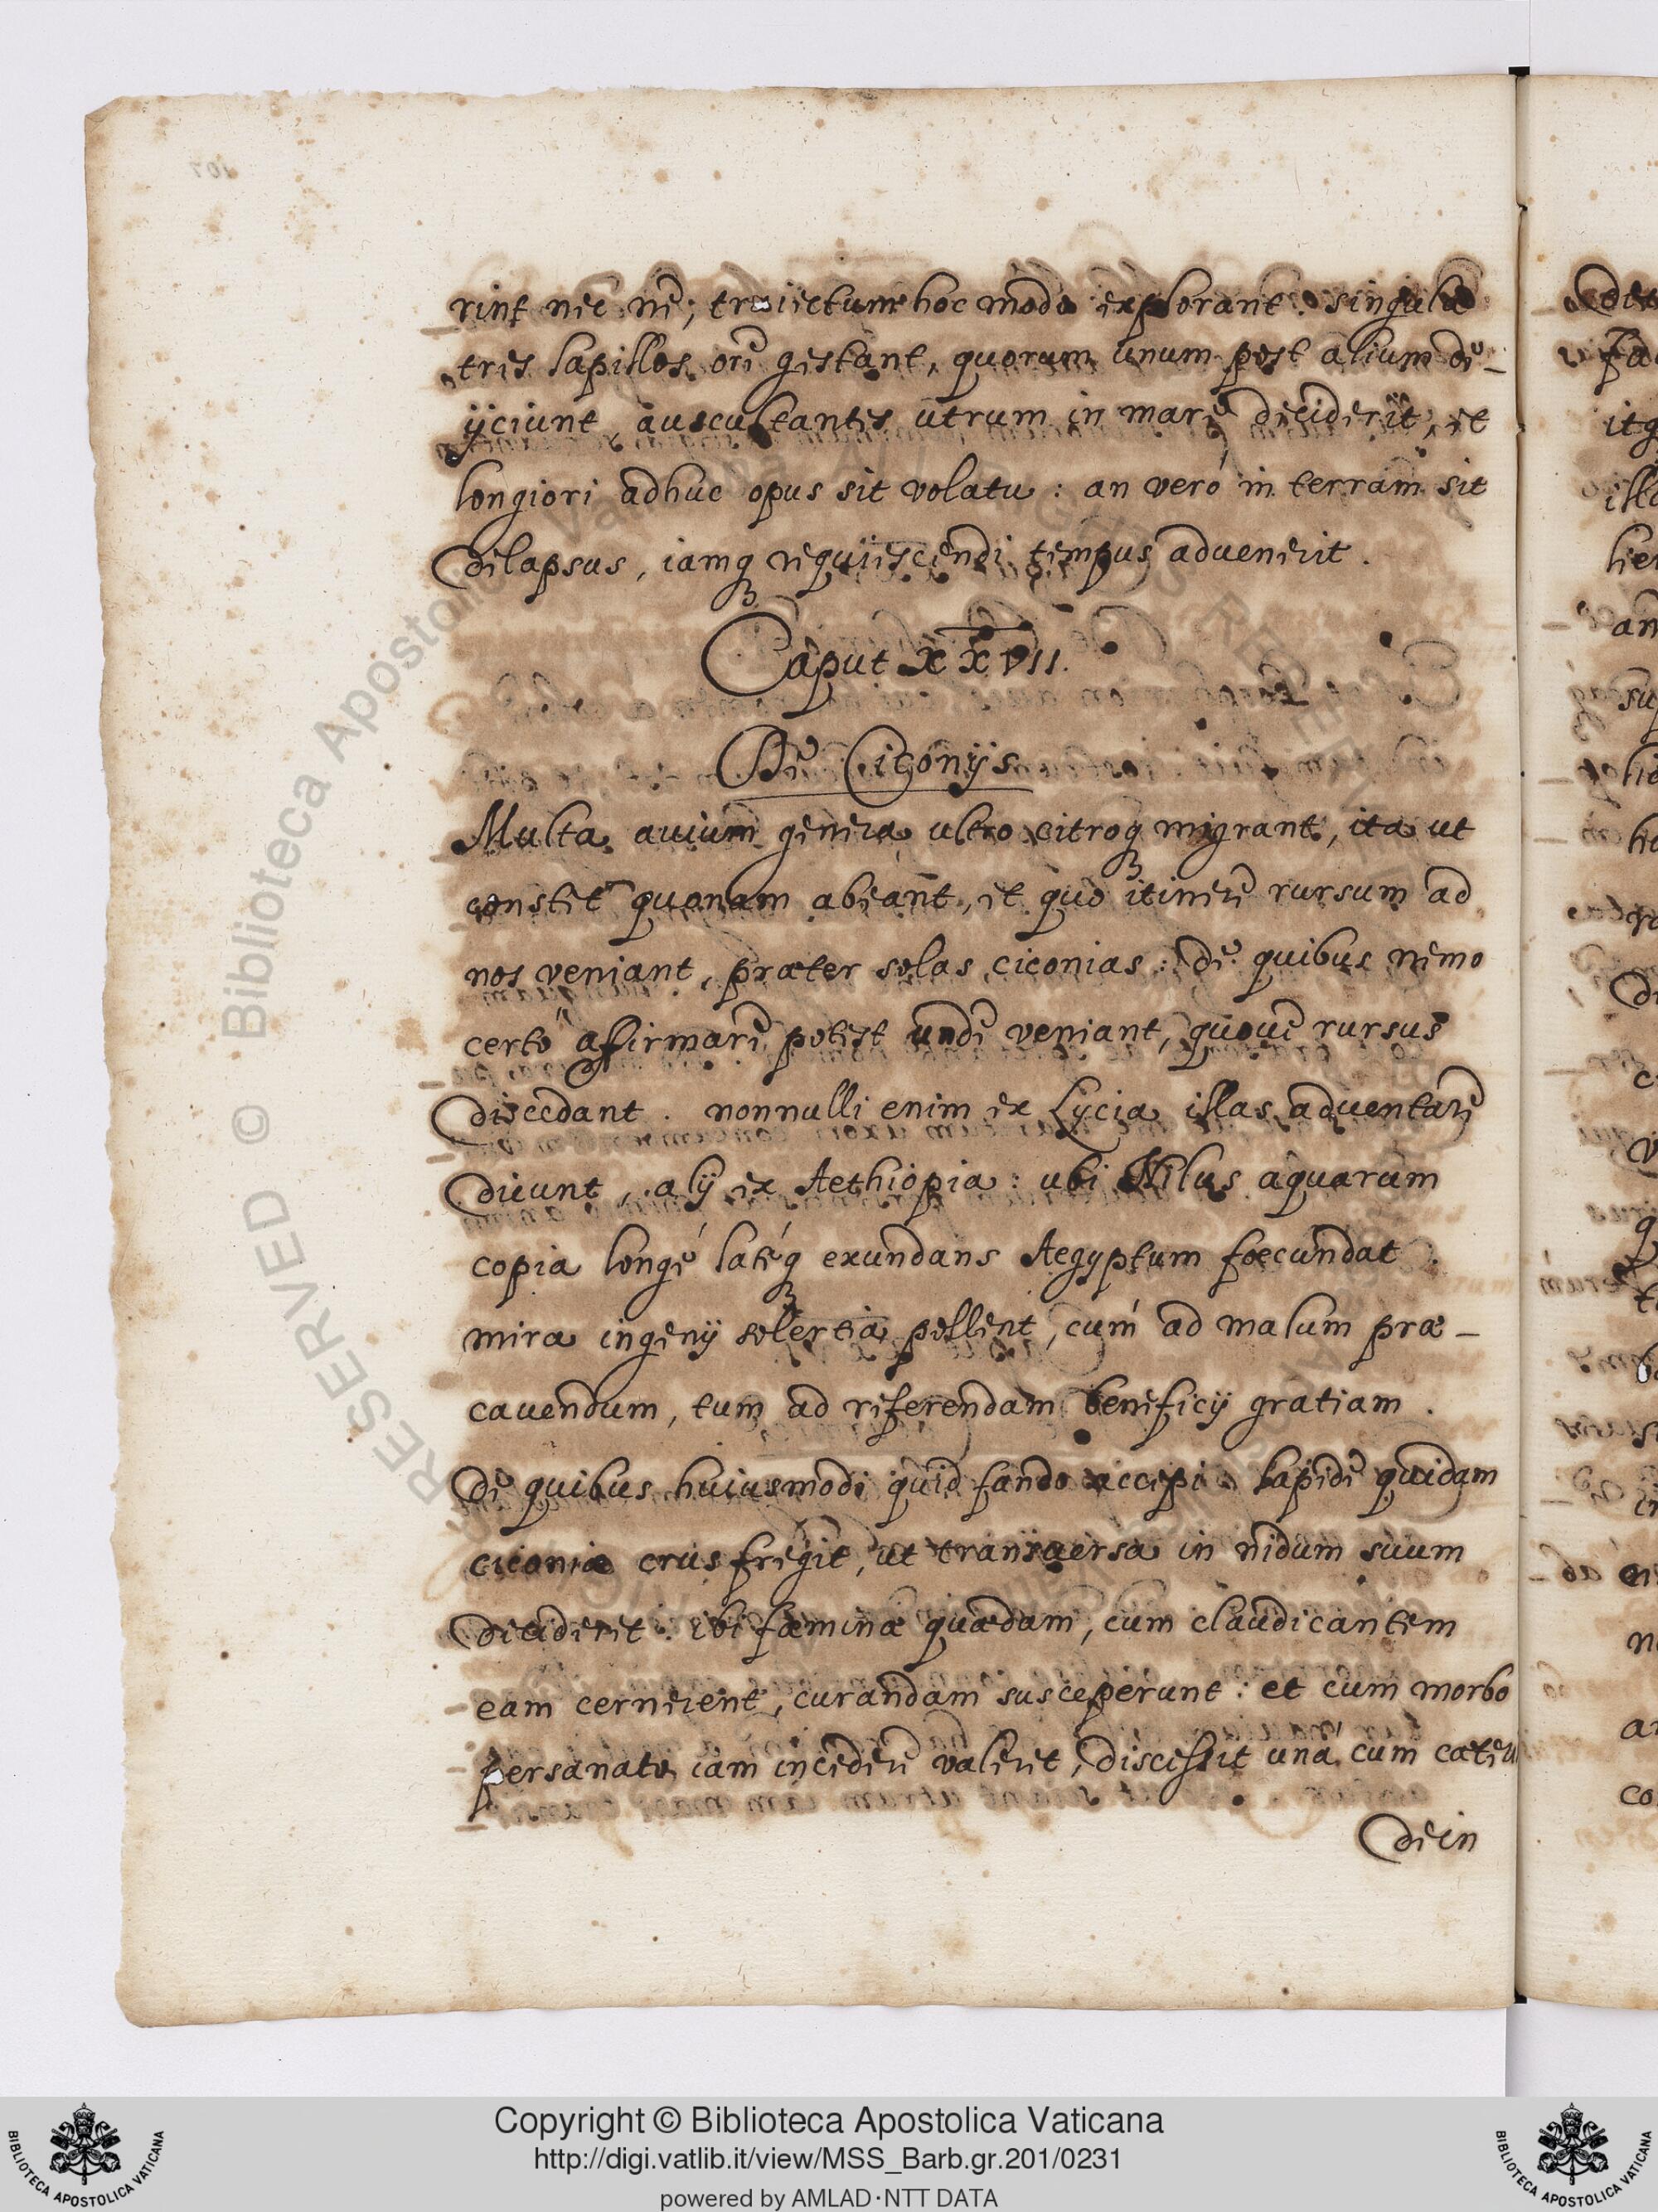 rint nec ne; traiectum hoc modo explorant. singulæ
tres lapillos ori gestant, quorum unum post alium de-
ijciunt auscultantes utrum in mare deciderit, et
longiori adhuc opus sit volatu: an veró in terram sit
delapsus, iamq requiescendi tempus advenerit.
Caput XXVII.
De Ciconijs
Multa auium genera ultro citroq migrant, ita ut
constet quonam abeant, et quo itinere rursum ad
nos veniant, præter solas ciconias: de quibus nemo
certo affirmare potest unde veniant, quove rursus
discedant. nonnulli enim ex Lycia illas adventare
dicunt, alij ex Aethiopia: ubi Nilus aquarum
copia longé latéq exundans Aegyptum fœcundat.
mira ingenij solertia pollent, cum ad malum præ-
cavendum, tum ad referendam beneficij gratiam.
De quibus huiusmodi quid fando accepi. lapide quidam
ciconiæ crus fregit, ut transversa in nidum suum
deciderit: ibi fœminæ quædam, cum claudicantem
eam cernerent, curandam susceperunt: et cum morbo
persanato iam incedere valeret, discessit uná cum
dein
Copyright © Biblioteca Apostolica Vaticana
http://digi.vatlib.it/view/MSS_Barb.gr.201/0231
powered by AMLAD·NTT DATA
BIBLIOTECA APOSTOLICA VATICANA
BIBLIOTECA APOSTOLICA VATICANA